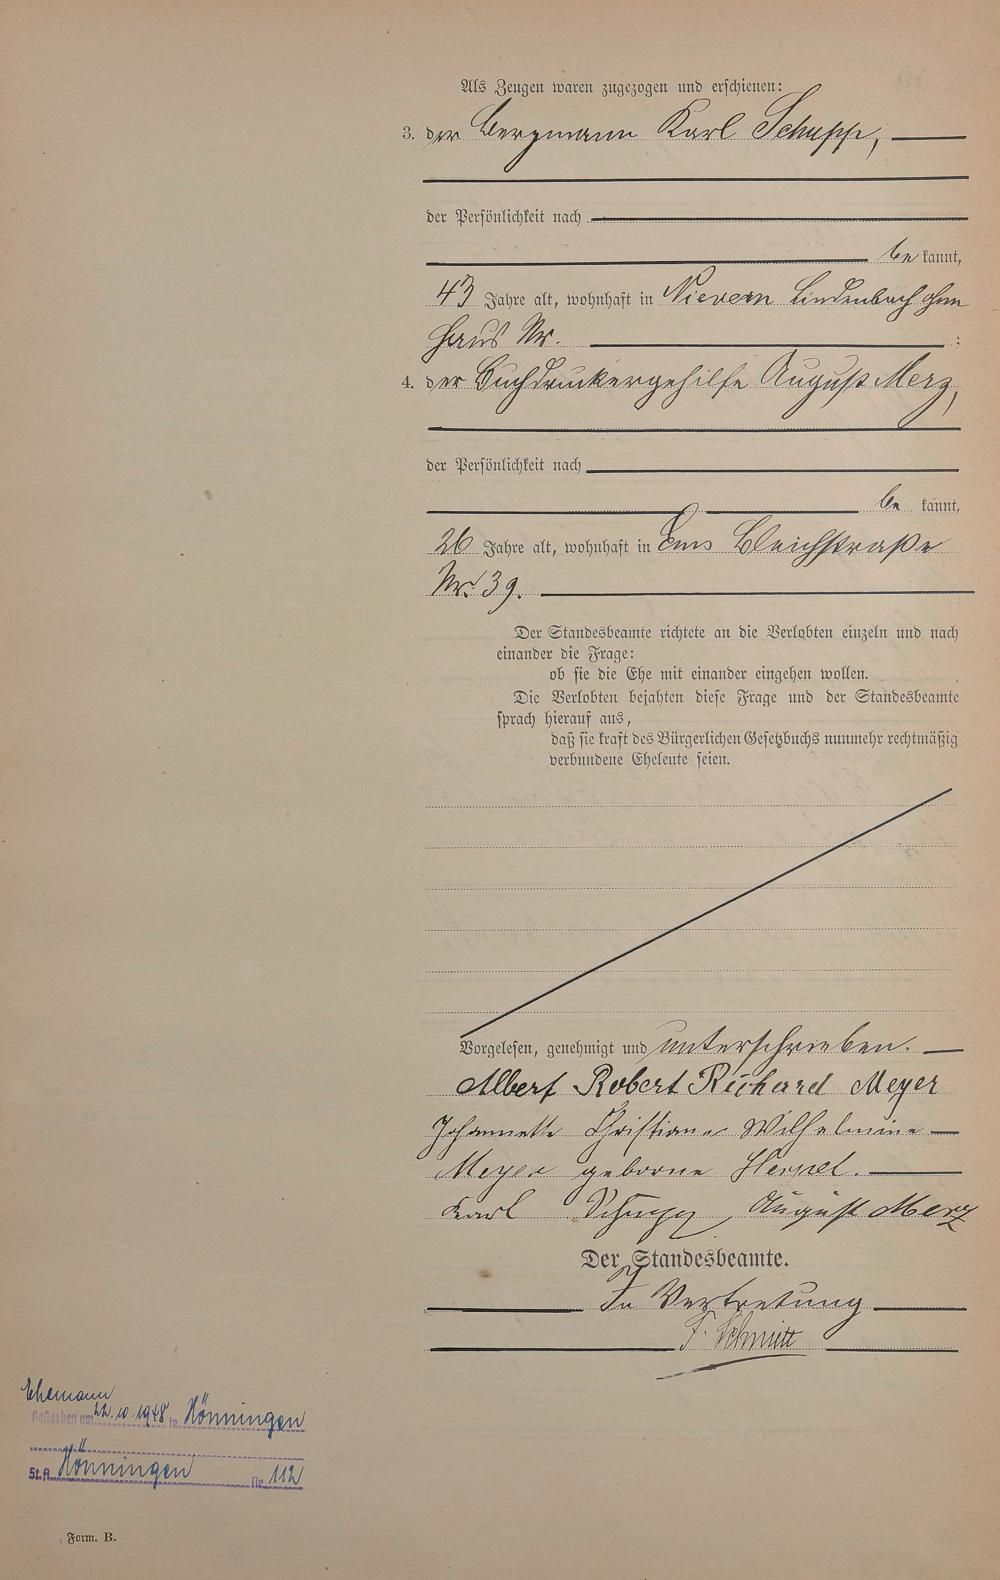 Als Zeugen waren zugezogen und erschienen:
3. der Bergmann Karl Schupp,
der Persönlichkeit nach
be kannt,
43 Jahre alt, wohnhaft in Nievern Lindenbach ohne
Haus Nr. :
4. der Buchdruckergehilfe August Merz,
der Persönlichkeit nach
be kannt,
26 Jahre alt, wohnhaft in Ems Bleichstraße
Nr. 39.
Der Standesbeamte richtete an die Verlobten einzeln und nach
einander die Frage:
ob sie die Ehe mit einander eingehen wollen.
Die Verlobten bejahten diese Frage und der Standesbeamte
sprach hierauf aus,
daß sie kraft des Bürgerlichen Gesetzbuchs nunmehr rechtmäßig
verbundene Eheleute seien.
Vorgelesen, genehmigt und unterschrieben.
Albert Robert Richard Meyer
Johannette Christiane Wilhelmine
Meyer geborne
Karl Schupp, August Merz
Der Standesbeamte.
In Vertretung
F. Schmitt
Ehemann
Gestorben am 22.10.1948 in Hönningen
St.A. Hönningen Nr. 112
Form. B.